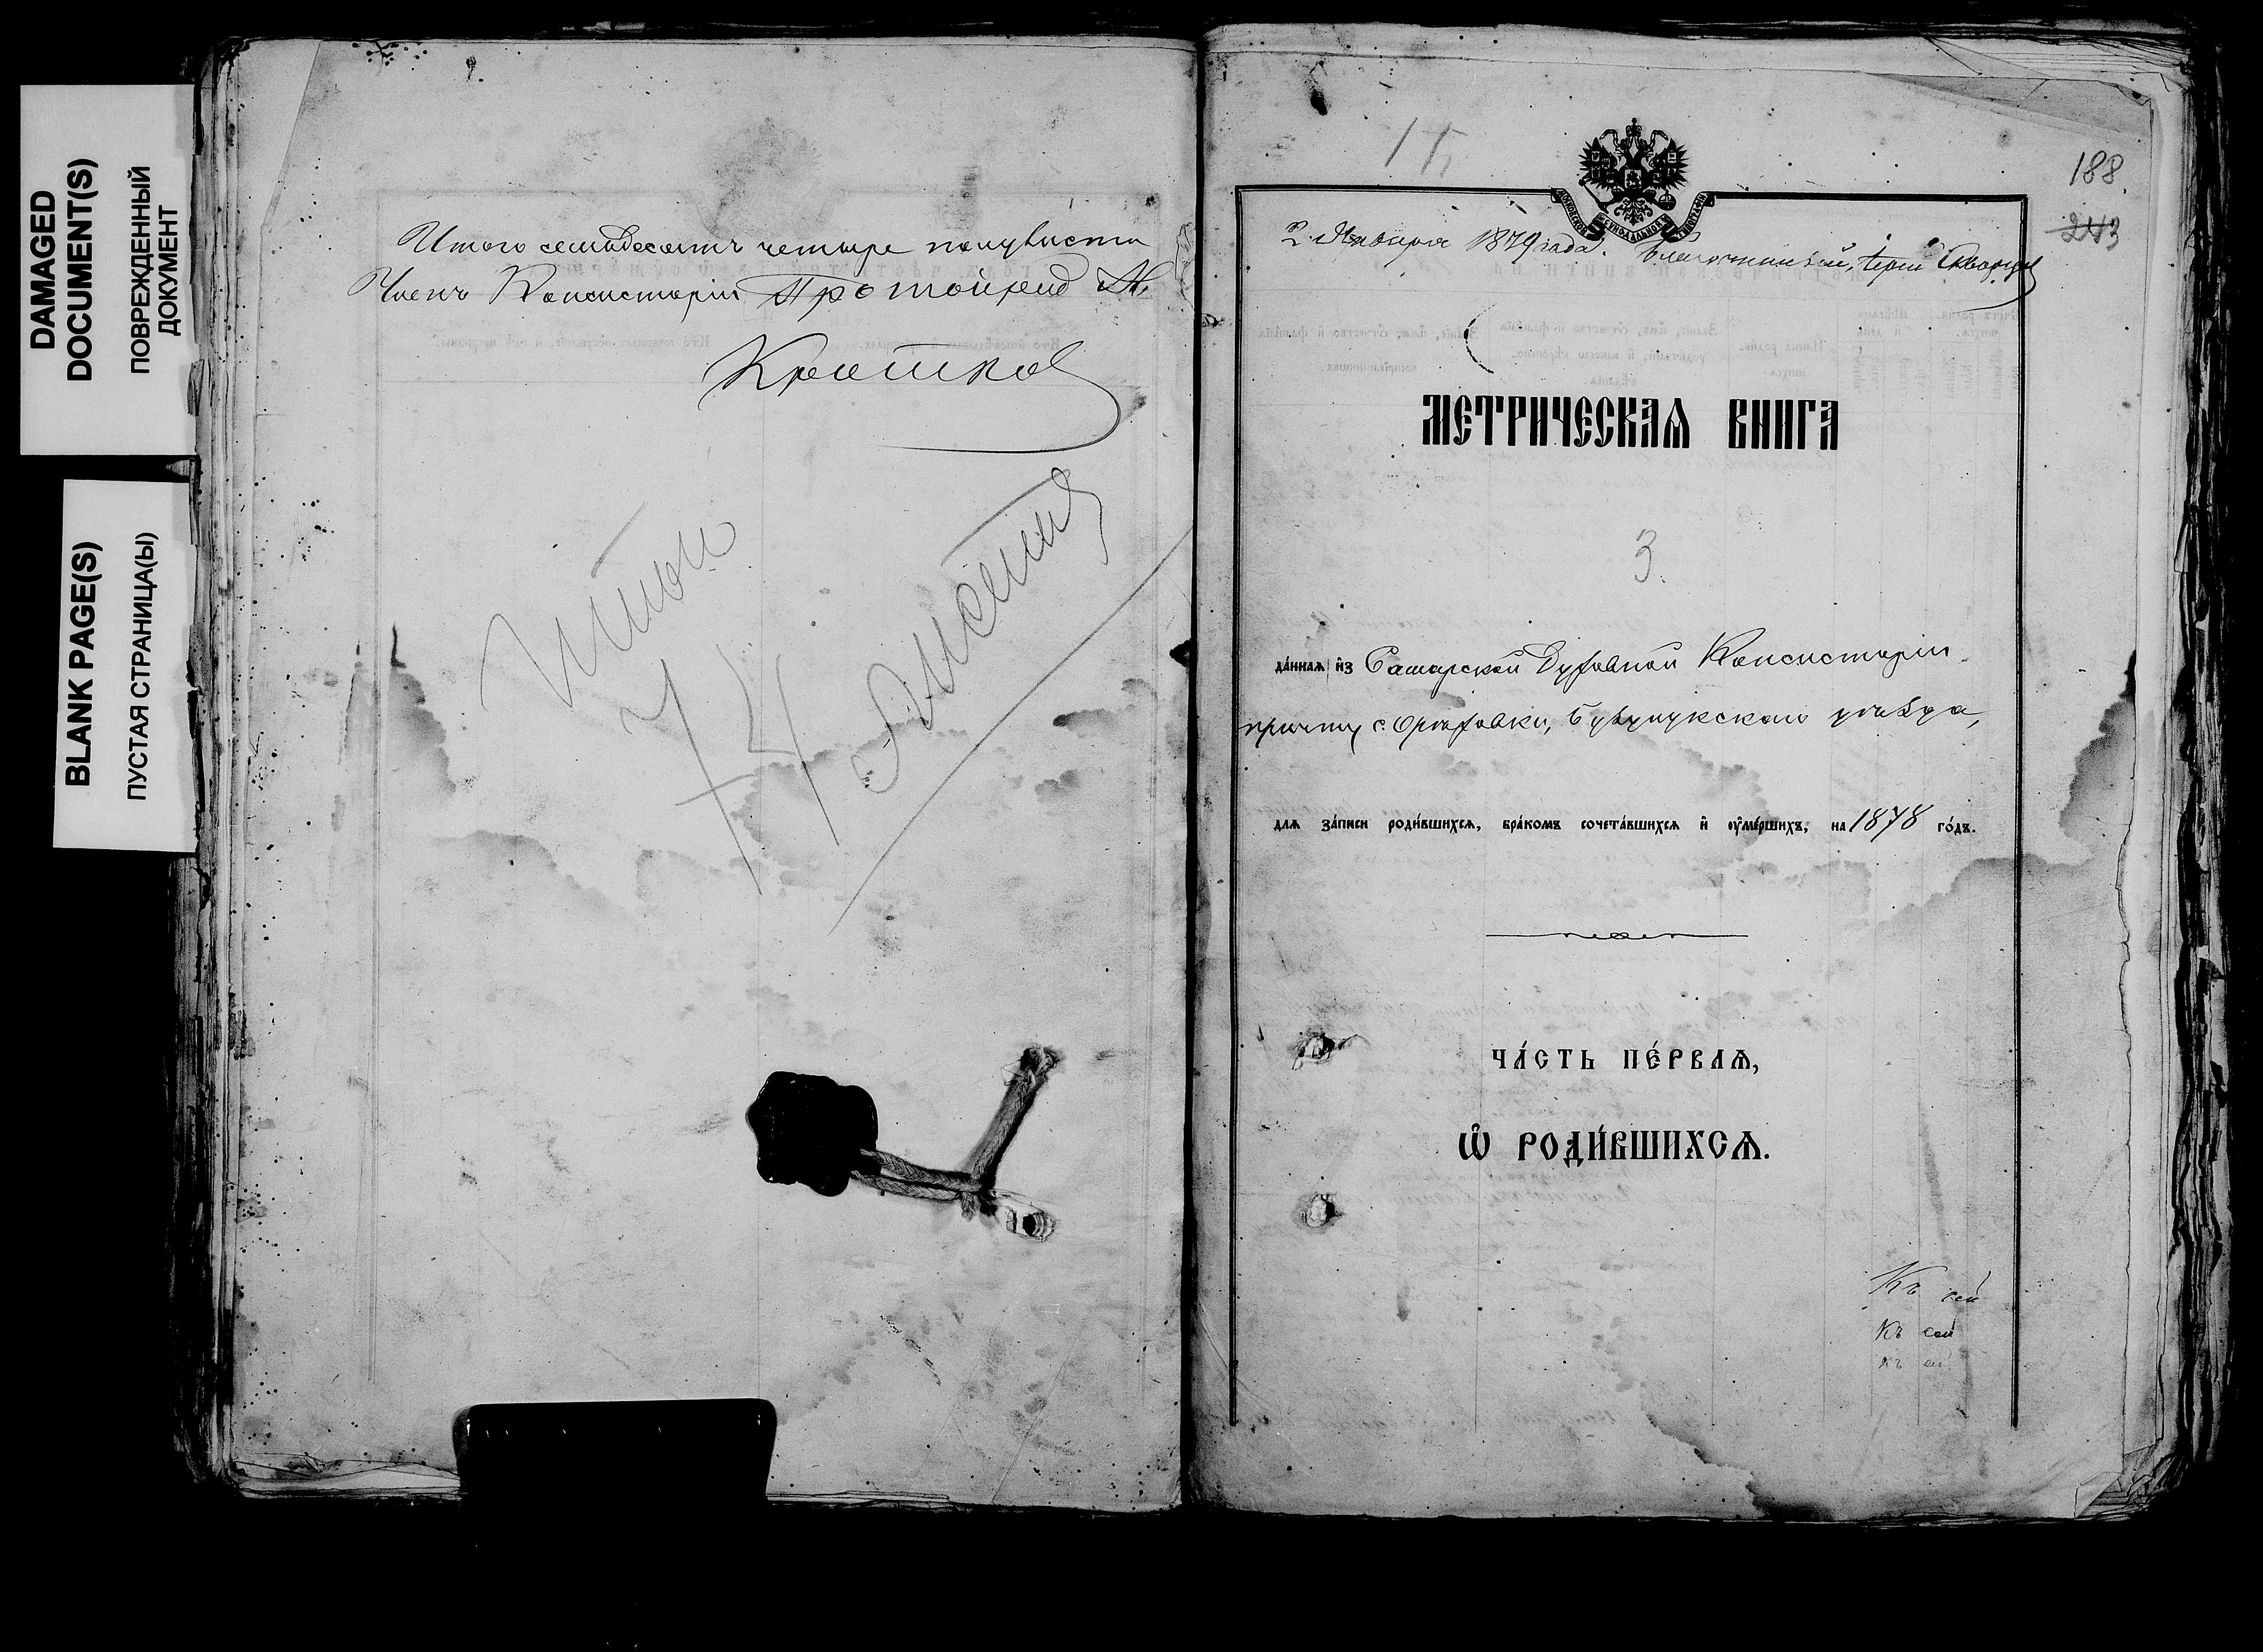 DAMAGED
DOCUMENT(S)
ПОВРЕЖДЕННЫЙ
ДОКУМЕНТ
BLANK PAGE(S)
ПУСТАЯ СТРАНИЦА(Ы)
Итого семьдесятъ четыре полулиста
Членъ Консисторіи Протоіерей
Кратков
Итого
74
листа
188
243
2 Января 1879 года. Благочинный, Іерей Скворцов
МЕТРИЧЕСКАѦ КНИГА
3.
да́ннаѧ и҆з Самарской Духовной Консисторіи
причту с. Орѣховки, Бузулукскаго уѣзда,
длѧ за́писи роди́вшихсѧ, бра́комъ сочета́вшихсѧ и҆ ѹ҆ме́ршихъ, на 1878 го́дъ.
ЧА́СТЬ ПЕ́РВАѦ,
Ѡ҆ РОДИ́ВШИХСѦ.
Къ сей
Къ сей
къ сей